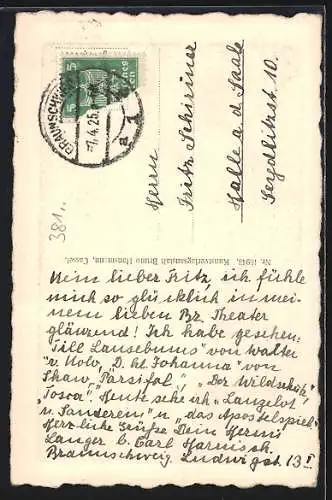 BRAUNSCHWEIG
-7.4.25.
5
5
Herrn
Fritz Schirmer
Halle a d Saale
Seydlitzst 10.
381.
Kunstverlagsanstalt Bruno Hansmann, Cassel.
Mein lieber Fritz ich fühle
mich so glücklich in mei-
nem lieben Bz Theater
glänzend! Ich habe gesehen:
"Till Lausebums" von Walter
v. Molo, "D. hl Johanna" von
Shaw, "Parsifal", "Der Wildschütz"
"Tosca". Heute sehe ich "Lanzelot
u. Sanderein" u "das Apostelspiel"
Herzliche Grüße Dein Hermi
Langer b. Carl Harnisch
Braunschweig Ludwigst 13 I